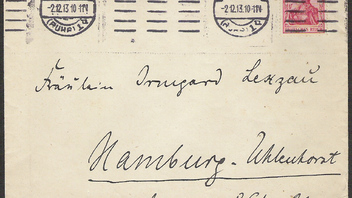 -2.12.13.10-11V -2.12.13.10-11V
Fräulein Irmgard Lexzau
Hamburg-Uhlenhorst